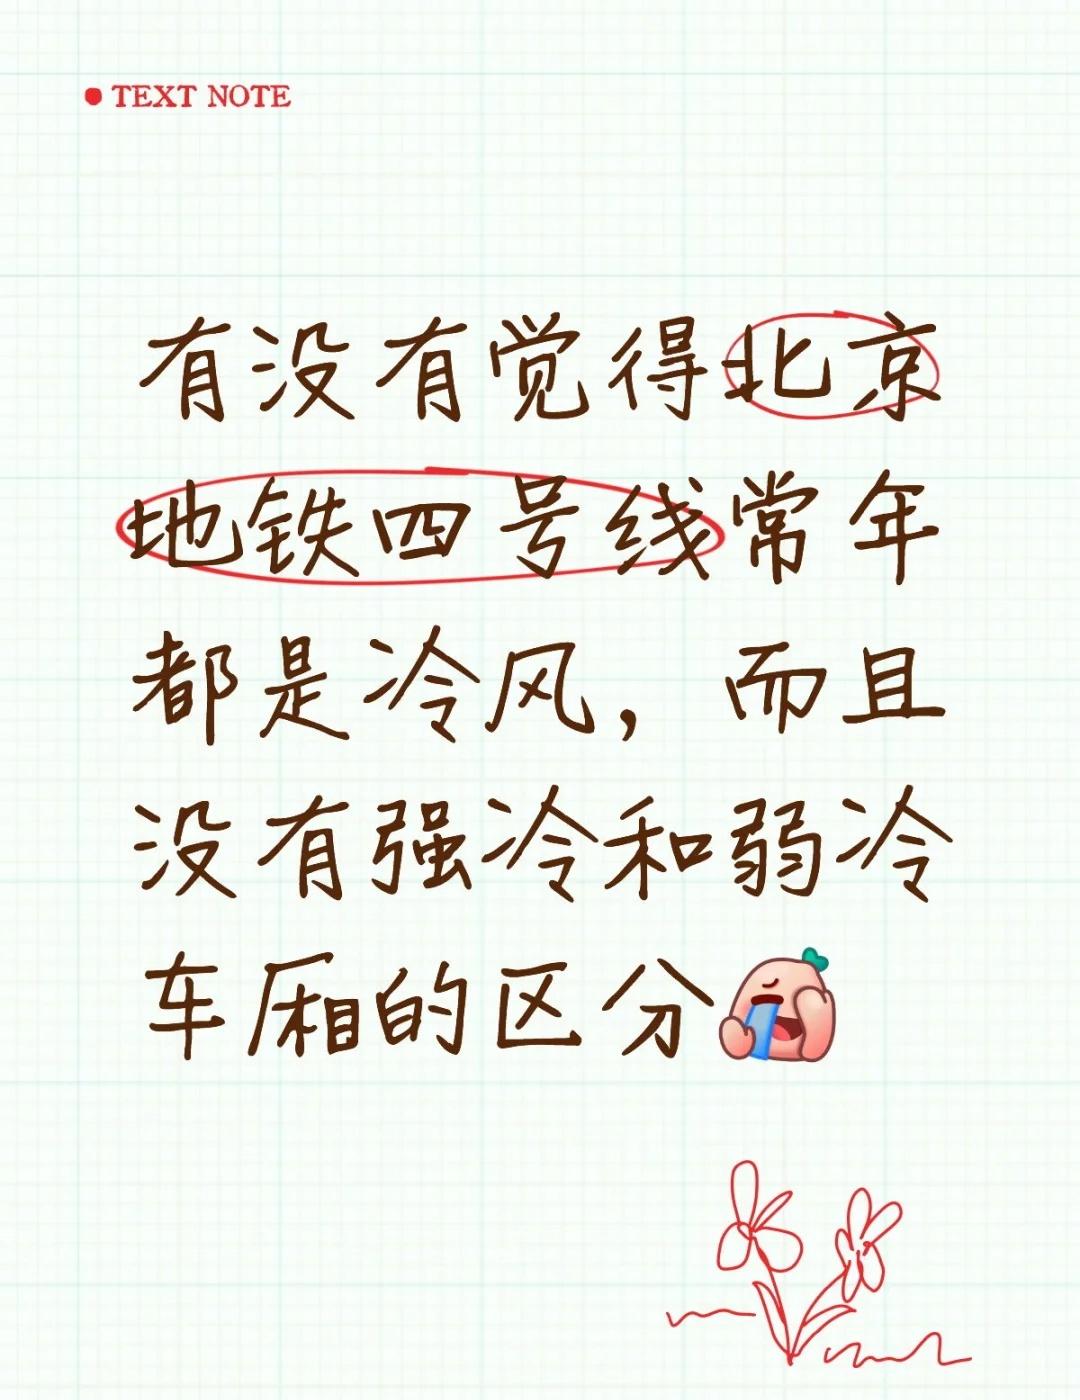 TEXT NOTE
有没有觉得北京
地铁四号线常年
都是冷风，而且
没有强冷和弱冷
车厢的区分